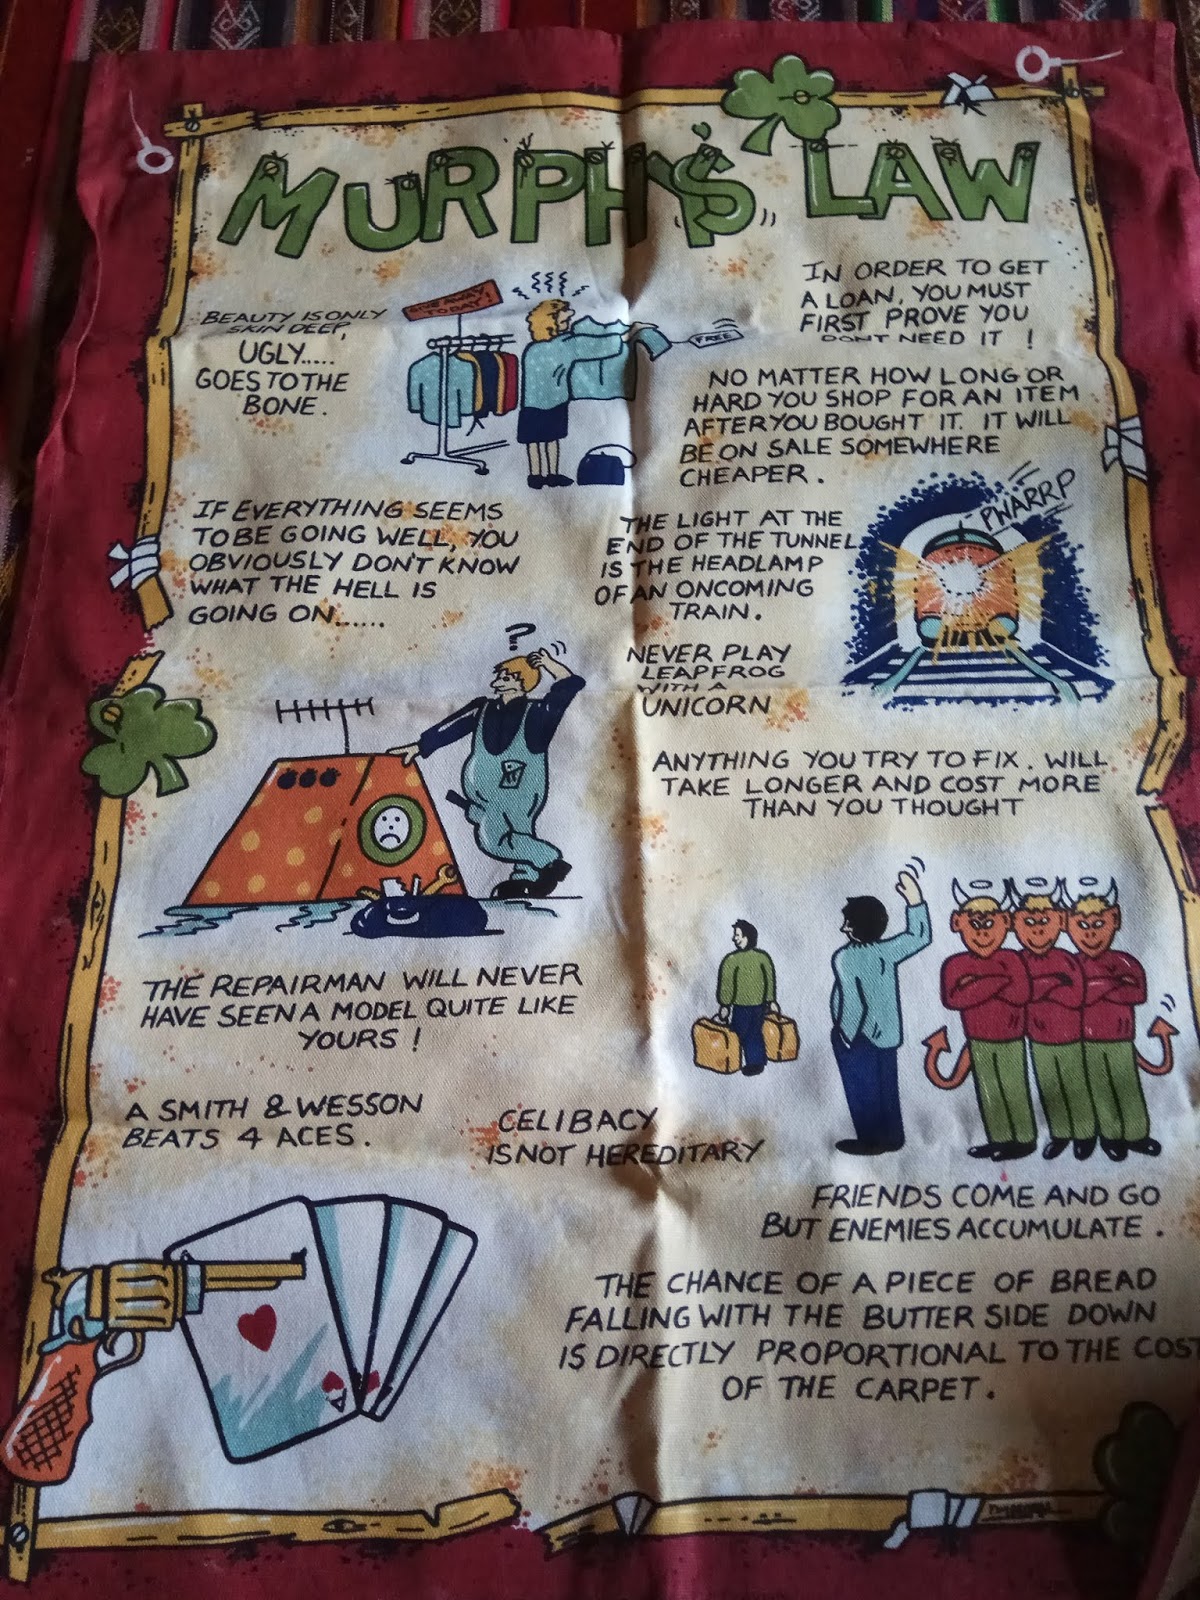 MURPHY'S LAW
BEAUTY IS ONLY
SKIN DEEP,
UGLY.....
GOES TO THE
BONE.
GIVE AWAY
TODAY!
FREE
IN ORDER TO GET
A LOAN, YOU MUST
FIRST PROVE YOU
DONT NEED IT !
NO MATTER HOW LONG OR
HARD YOU SHOP FOR AN ITEM
AFTER YOU BOUGHT IT. IT WILL
BE ON SALE SOMEWHERE
CHEAPER.
IF EVERYTHING SEEMS
TO BE GOING WELL, YOU
OBVIOUSLY DON'T KNOW
WHAT THE HELL IS
GOING ON......
THE LIGHT AT THE
END OF THE TUNNEL
IS THE HEADLAMP
OF AN ONCOMING
TRAIN.
PWARRP
NEVER PLAY
LEAPFROG
WITH A
UNICORN
?
ANYTHING YOU TRY TO FIX. WILL
TAKE LONGER AND COST MORE
THAN YOU THOUGHT
THE REPAIRMAN WILL NEVER
HAVE SEEN A MODEL QUITE LIKE
YOURS !
A SMITH & WESSON
BEATS 4 ACES.
CELIBACY
IS NOT HEREDITARY
FRIENDS COME AND GO
BUT ENEMIES ACCUMULATE.
A
THE CHANCE OF A PIECE OF BREAD
FALLING WITH THE BUTTER SIDE DOWN
IS DIRECTLY PROPORTIONAL TO THE COST
OF THE CARPET.